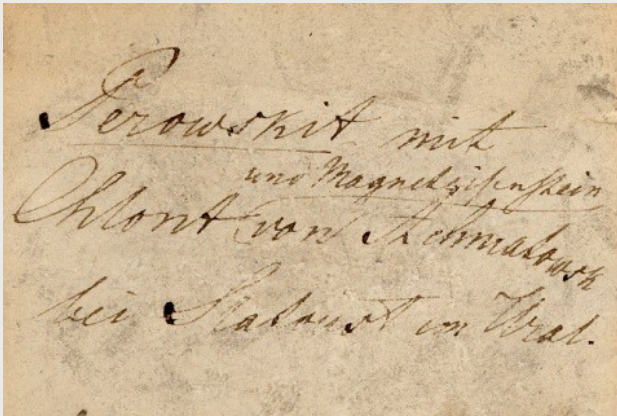 Perowskit mit
und Magneteisenstein
Chlorit von Achmatowsk
bei Slatoust im Ural.